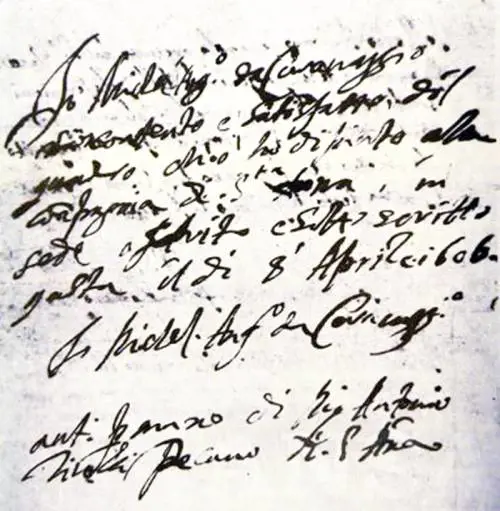 Io Michel Ang.o da Caravaggio
son contento e satisfatto del
quadro ch'io ho dipinto alla
Compagnia di S.ta Anna, in
fede o scritto e sotto scritto
questa il di 8 Aprile 1606.
Io Michel Ang.o da Caravaggio
di Antonio
Tirelli Decano